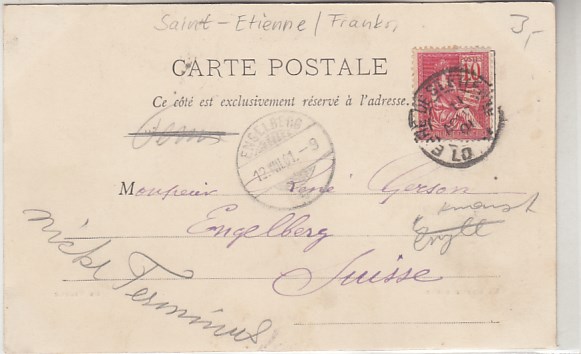 Saint-Etienne / Frankr,
3,-
10
CARTE POSTALE
Ce côté est exclusivement réservé à l'adresse.
ENGELBERG
13.VIII.01.-9
Monsieur René Gerson
Engelberg
Suisse
nicht Terminus